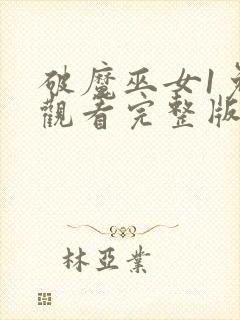 破魔巫女1
觀看完整版
林亞業